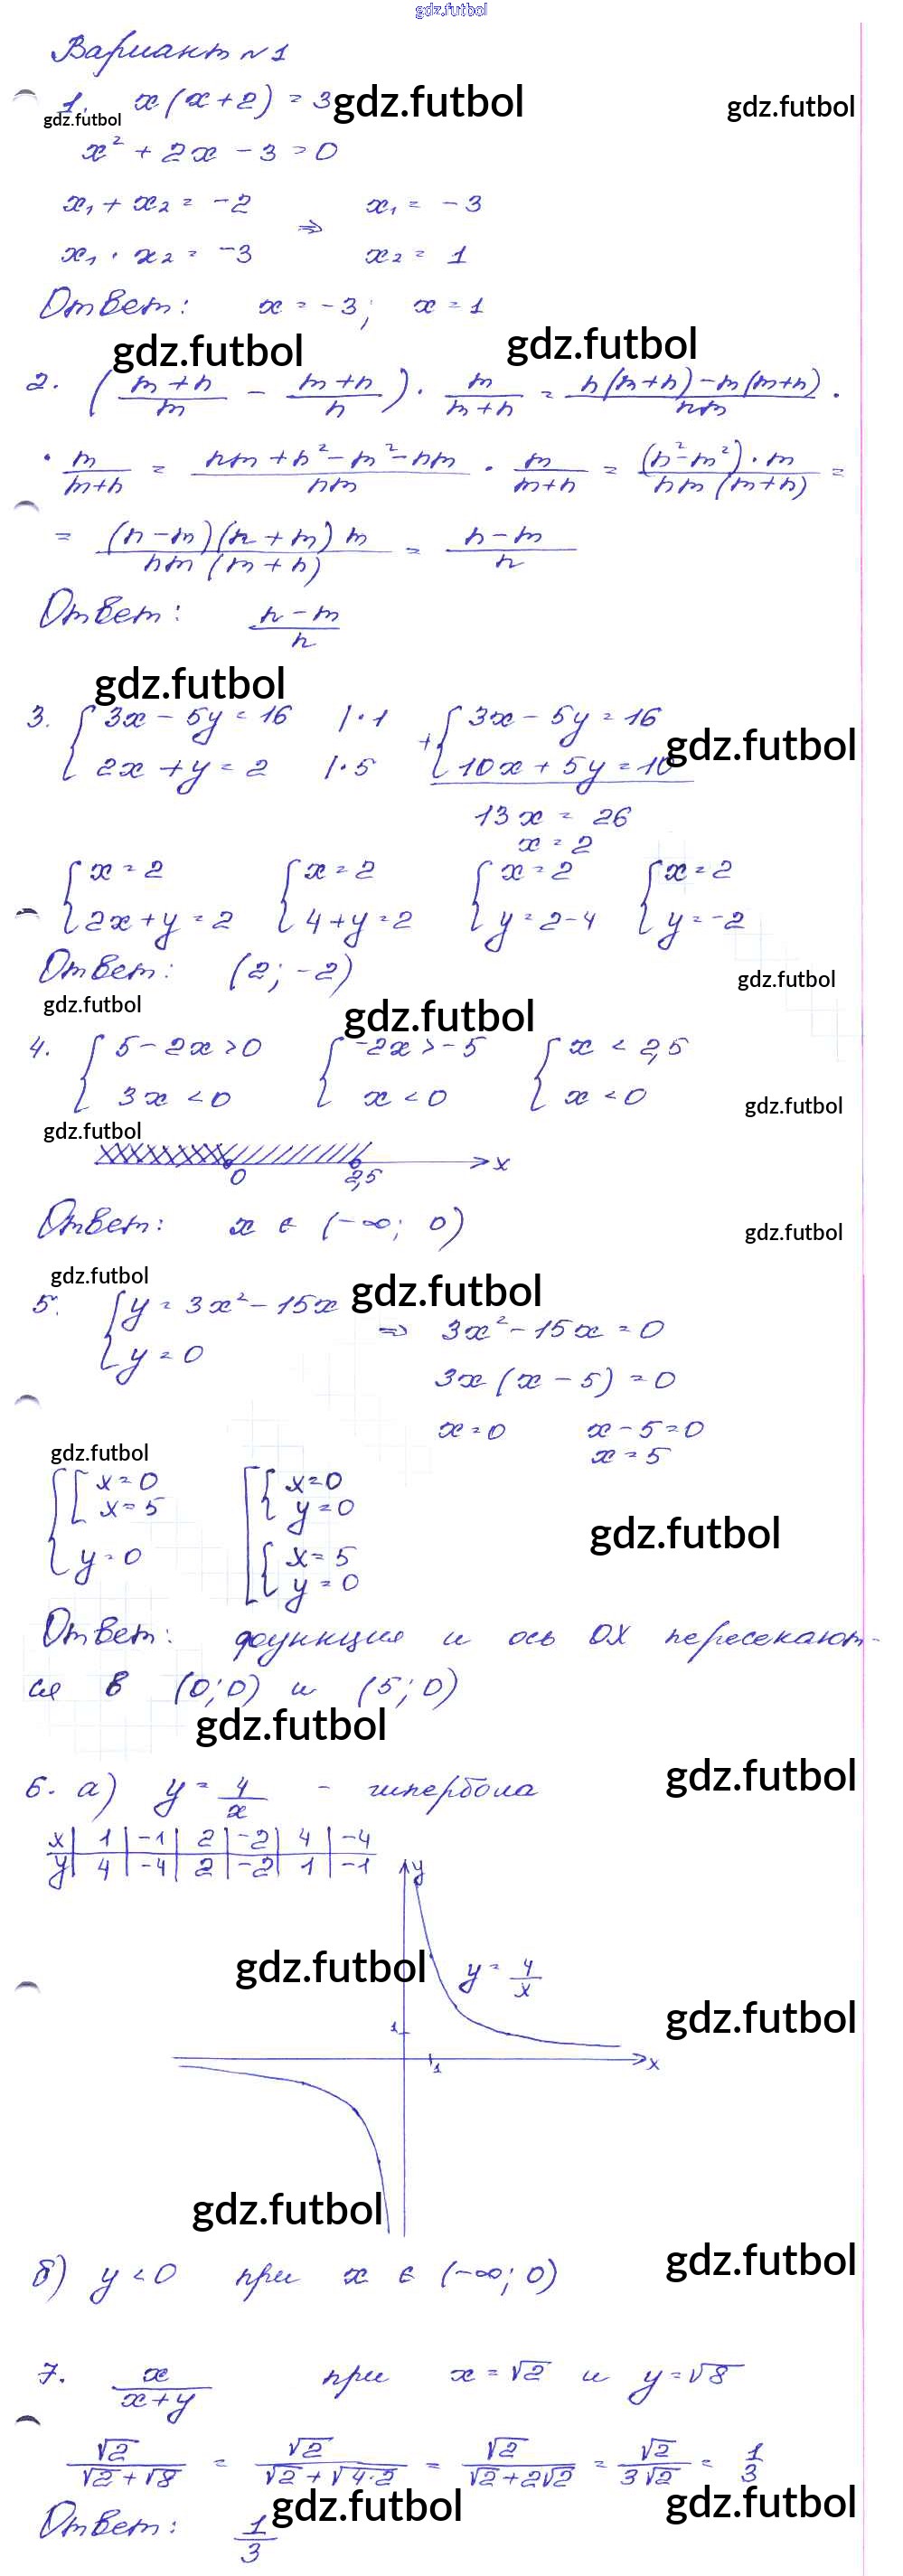 gdz.futbol
Вариант №1
1. x(x+2) = 3 gdz.futbol gdz.futbol
gdz.futbol
x² + 2x - 3 = 0
x₁ + x₂ = -2 ⇒ x₁ = -3
x₁ · x₂ = -3 x₂ = 1
Ответ: x = -3; x = 1
gdz.futbol gdz.futbol
2. ((m+n)/m - (m+n)/n) · m/(m+n) = (n(m+n) - m(m+n))/nm ·
· m/(m+n) = (nm + n² - m² - nm)/nm · m/(m+n) = ((n² - m²) · m)/(nm(m+n)) =
= ((n-m)(n+m)m)/(nm(m+n)) = (n-m)/n
Ответ: (n-m)/n
gdz.futbol
3. { 3x - 5y = 16 |·1 + { 3x - 5y = 16
gdz.futbol
2x + y = 2 |·5 10x + 5y = 10
13x = 26
x = 2
{ x = 2 { x = 2 { x = 2 { x = 2
2x + y = 2 4 + y = 2 y = 2-4 y = -2
Ответ: (2; -2)
gdz.futbol
gdz.futbol gdz.futbol
4. { 5 - 2x > 0 { -2x > -5 { x < 2,5
3x < 0 x < 0 x < 0
gdz.futbol
gdz.futbol
0 2,5 x
Ответ: x ∈ (-∞; 0)
gdz.futbol
gdz.futbol gdz.futbol
5. { y = 3x² - 15x ⇒ 3x² - 15x = 0
y = 0
3x(x - 5) = 0
x = 0 x - 5 = 0
gdz.futbol x = 5
{ [ x = 0 [ { x = 0
x = 5 y = 0
gdz.futbol
y = 0 { x = 5
y = 0
Ответ: функция и ось OX пересекают-
ся в (0; 0) и (5; 0)
gdz.futbol
6. а) y = 4/x - гипербола gdz.futbol
x | 1 | -1 | 2 | -2 | 4 | -4
y | 4 | -4 | 2 | -2 | 1 | -1
y
gdz.futbol y = 4/x
gdz.futbol
1
1 x
gdz.futbol
gdz.futbol
б) y < 0 при x ∈ (-∞; 0)
7. x/(x+y) при x = √2 и y = √8
√2/(√2+√8) = √2/(√2+√(4·2)) = √2/(√2+2√2) = √2/(3√2) = 1/3
gdz.futbol gdz.futbol
Ответ: 1/3